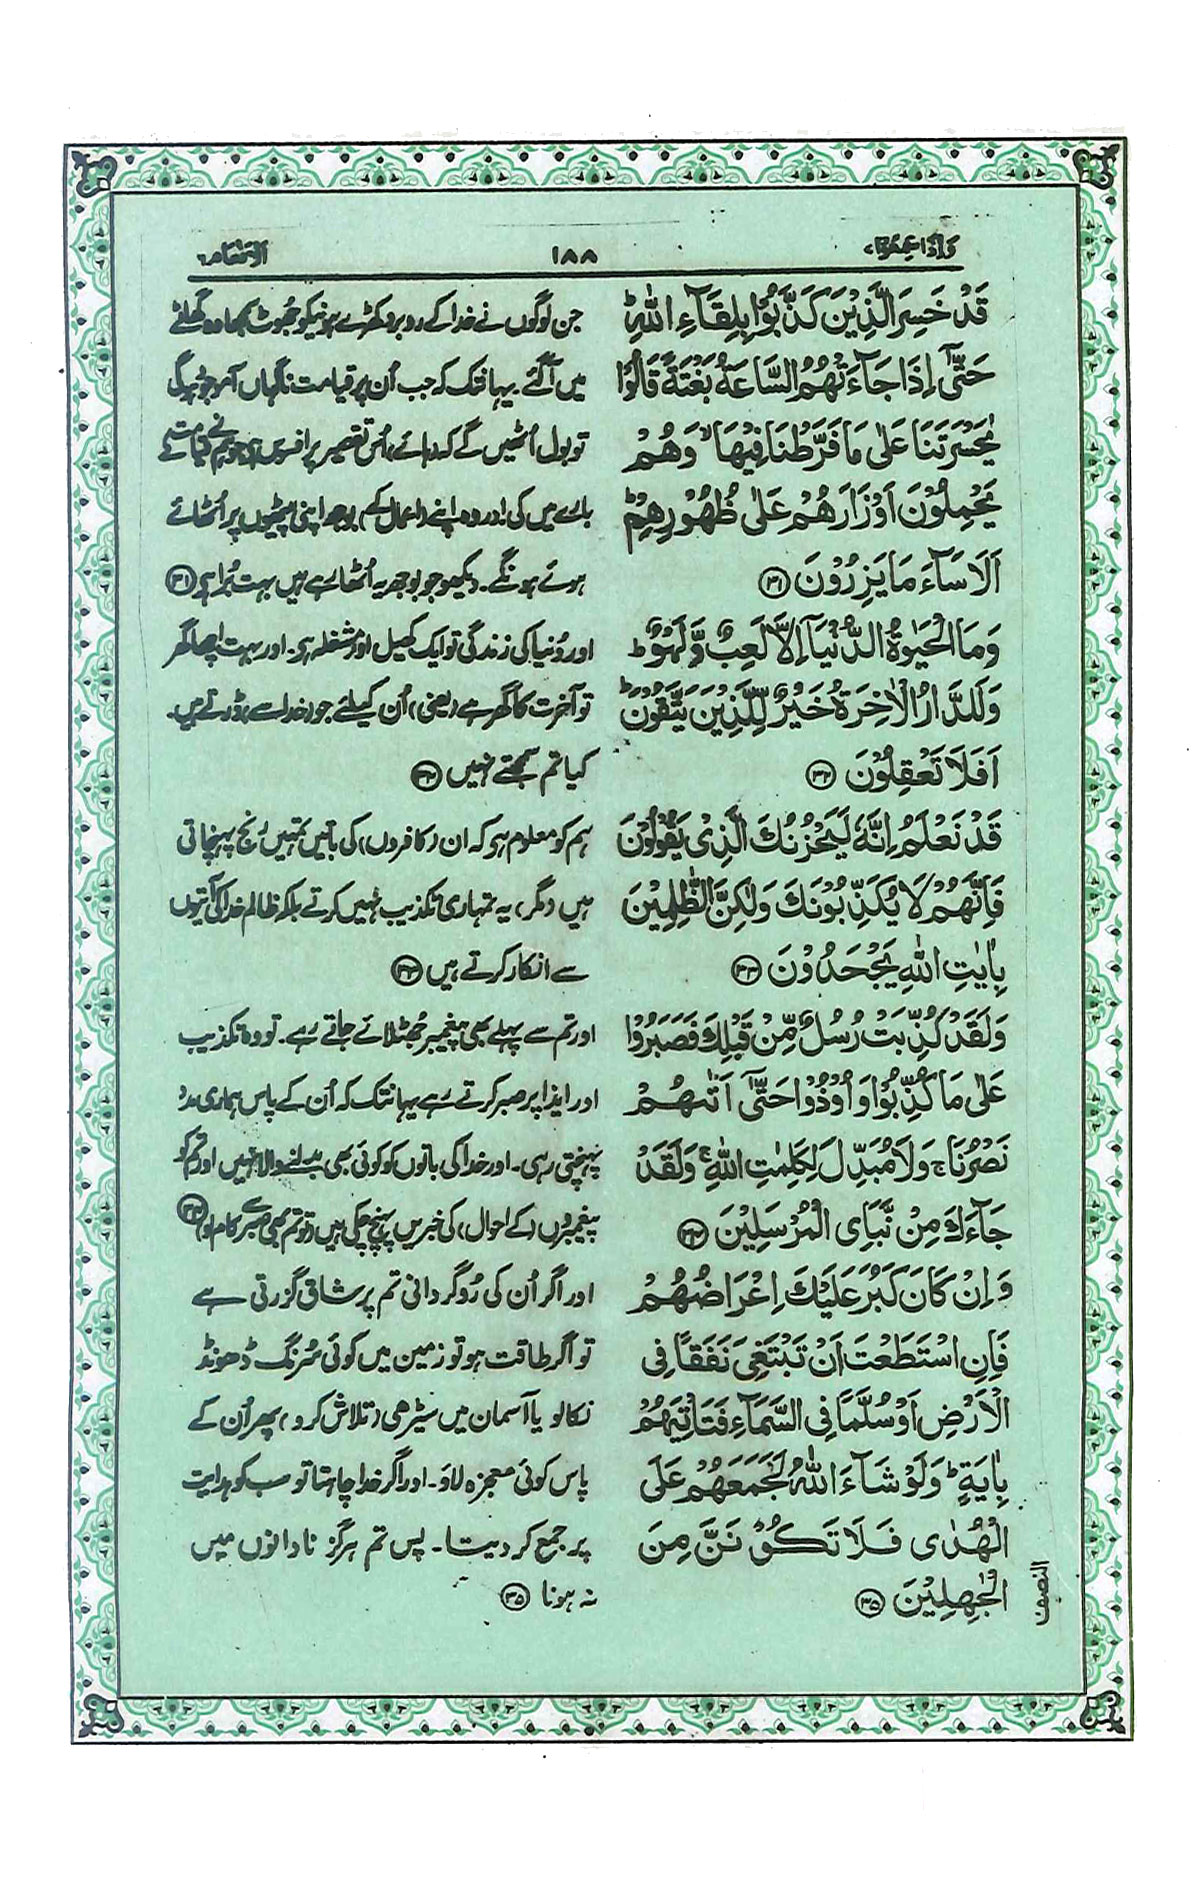 وَإِذَا سَمِعُوا ٧
١٨٨
الانعام ٦
قَدْ خَسِرَ الَّذِيْنَ كَذَّبُوْا بِلِقَآءِ اللّٰهِ ؕ
حَتّٰۤى اِذَا جَآءَتْهُمُ السَّاعَةُ بَغْتَةً قَالُوْا
يٰحَسْرَتَنَا عَلٰى مَا فَرَّطْنَا فِيْهَا ۙ وَهُمْ
يَحْمِلُوْنَ اَوْزَارَهُمْ عَلٰى ظُهُوْرِهِمْ ؕ
اَلَا سَآءَ مَا يَزِرُوْنَ ﴿۳۱﴾
وَمَا الْحَيٰوةُ الدُّنْيَاۤ اِلَّا لَعِبٌ وَّلَهْوٌ ؕ
وَلَلدَّارُ الْاٰخِرَةُ خَيْرٌ لِّلَّذِيْنَ يَتَّقُوْنَ ؕ
اَفَلَا تَعْقِلُوْنَ ﴿۳۲﴾
قَدْ نَعْلَمُ اِنَّهٗ لَيَحْزُنُكَ الَّذِىْ يَقُوْلُوْنَ
فَاِنَّهُمْ لَا يُكَذِّبُوْنَكَ وَلٰكِنَّ الظّٰلِمِيْنَ
بِاٰيٰتِ اللّٰهِ يَجْحَدُوْنَ ﴿۳۳﴾
وَلَقَدْ كُذِّبَتْ رُسُلٌ مِّنْ قَبْلِكَ فَصَبَرُوْا
عَلٰى مَا كُذِّبُوْا وَاُوْذُوْا حَتّٰۤى اَتٰىهُمْ
نَصْرُنَا ۚ وَلَا مُبَدِّلَ لِكَلِمٰتِ اللّٰهِ ۚ وَلَقَدْ
جَآءَكَ مِنْ نَّبَاِى الْمُرْسَلِيْنَ ﴿۳۴﴾
وَاِنْ كَانَ كَبُرَ عَلَيْكَ اِعْرَاضُهُمْ
فَاِنِ اسْتَطَعْتَ اَنْ تَبْتَغِىَ نَفَقًا فِى
الْاَرْضِ اَوْ سُلَّمًا فِى السَّمَآءِ فَتَاْتِيَهُمْ
بِاٰيَةٍ ؕ وَلَوْ شَآءَ اللّٰهُ لَجَمَعَهُمْ عَلَى
الْهُدٰى فَلَا تَكُوْنَنَّ مِنَ
الْجٰهِلِيْنَ ﴿۳۵﴾
النصف
جن لوگوں نے خدا کے روبرو کھڑے ہونیکو جھوٹ سمجھا وہ گھاٹے
میں آگئے۔ یہانتک کہ جب اُن پر قیامت ناگہاں آموجود ہوگی
تو بول اُٹھیں گے کہ (ہائے) اُس تقصیر پر افسوس ہی جو ہم نے قیامت کے
بارے میں کی۔ اور وہ اپنے (اعمال کے) بوجھ اپنی پیٹھوں پر اُٹھائے
ہوئے ہونگے۔ دیکھو جو بوجھ یہ اُٹھا رہے ہیں بہت بُرا ہی ﴿۳۱﴾
اور دُنیا کی زندگی تو ایک کھیل اور مشغلہ ہی۔ اور بہت اچھا گھر
تو آخرت کا گھر ہے (یعنی) اُن کیلئے جو (خدا سے) ڈرتے ہیں۔
کیا تم سمجھتے نہیں ﴿۳۲﴾
ہم کو معلوم ہی کہ ان (کافروں) کی باتیں تمہیں رنج پہنچاتی
ہیں (مگر) یہ تمہاری تکذیب نہیں کرتے بلکہ ظالم خدا کی آیتوں
سے انکار کرتے ہیں ﴿۳۳﴾
اور تم سے پہلے بھی پیغمبر جُھٹلائے جاتے رہے۔ تو وہ تکذیب
اور ایذا پر صبر کرتے رہے یہانتک کہ اُن کے پاس ہماری مدد
پہنچتی رہی۔ اور خدا کی باتوں کو کوئی بھی بدلنے والا نہیں اور تم کو
پیغمبروں (کے احوال) کی خبریں پہنچ چکی ہیں (تو تم بھی صبر سے کام لو) ﴿۳۴﴾
اور اگر اُن کی رُوگردانی تم پر شاق گزرتی ہے
تو اگر طاقت ہو تو زمین میں کوئی سُرنگ ڈھونڈ
نکالو یا آسمان میں سیڑھی (تلاش کرو) پھر اُن کے
پاس کوئی معجزہ لاؤ۔ اور اگر خدا چاہتا تو سب کو ہدایت
پر جمع کر دیتا۔ پس تم ہرگز نادانوں میں
نہ ہونا ﴿۳۵﴾